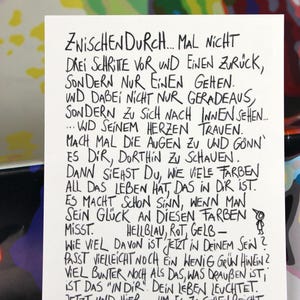 ZWISCHENDURCH... MAL NICHT
DREI SCHRITTE VOR UND EINEN ZURÜCK,
SONDERN NUR EINEN GEHEN.
UND DABEI NICHT NUR GERADEAUS,
SONDERN ZU SICH NACH INNEN SEHEN...
...UND SEINEM HERZEN TRAUEN.
MACH MAL DIE AUGEN ZU UND GÖNN'
ES DIR, DORTHIN ZU SCHAUEN.
DANN SIEHST DU, WIE VIELE FARBEN
ALL DAS LEBEN HAT, DAS IN DIR IST.
ES MACHT SCHON SINN, WENN MAN
SEIN GLÜCK AN DIESEN FARBEN
MISST. HELLBLAU, ROT, GELB –
WIE VIEL DAVON IST JETZT IN DEINEM SEIN?
PASST VIELLEICHT NOCH EIN WENIG GRÜN HINEIN?
VIEL BUNTER NOCH ALS DAS, WAS DRAUSSEN IST,
IST DAS "IN DIR". DEIN LEBEN LEUCHTET.
JETZT UND HIER